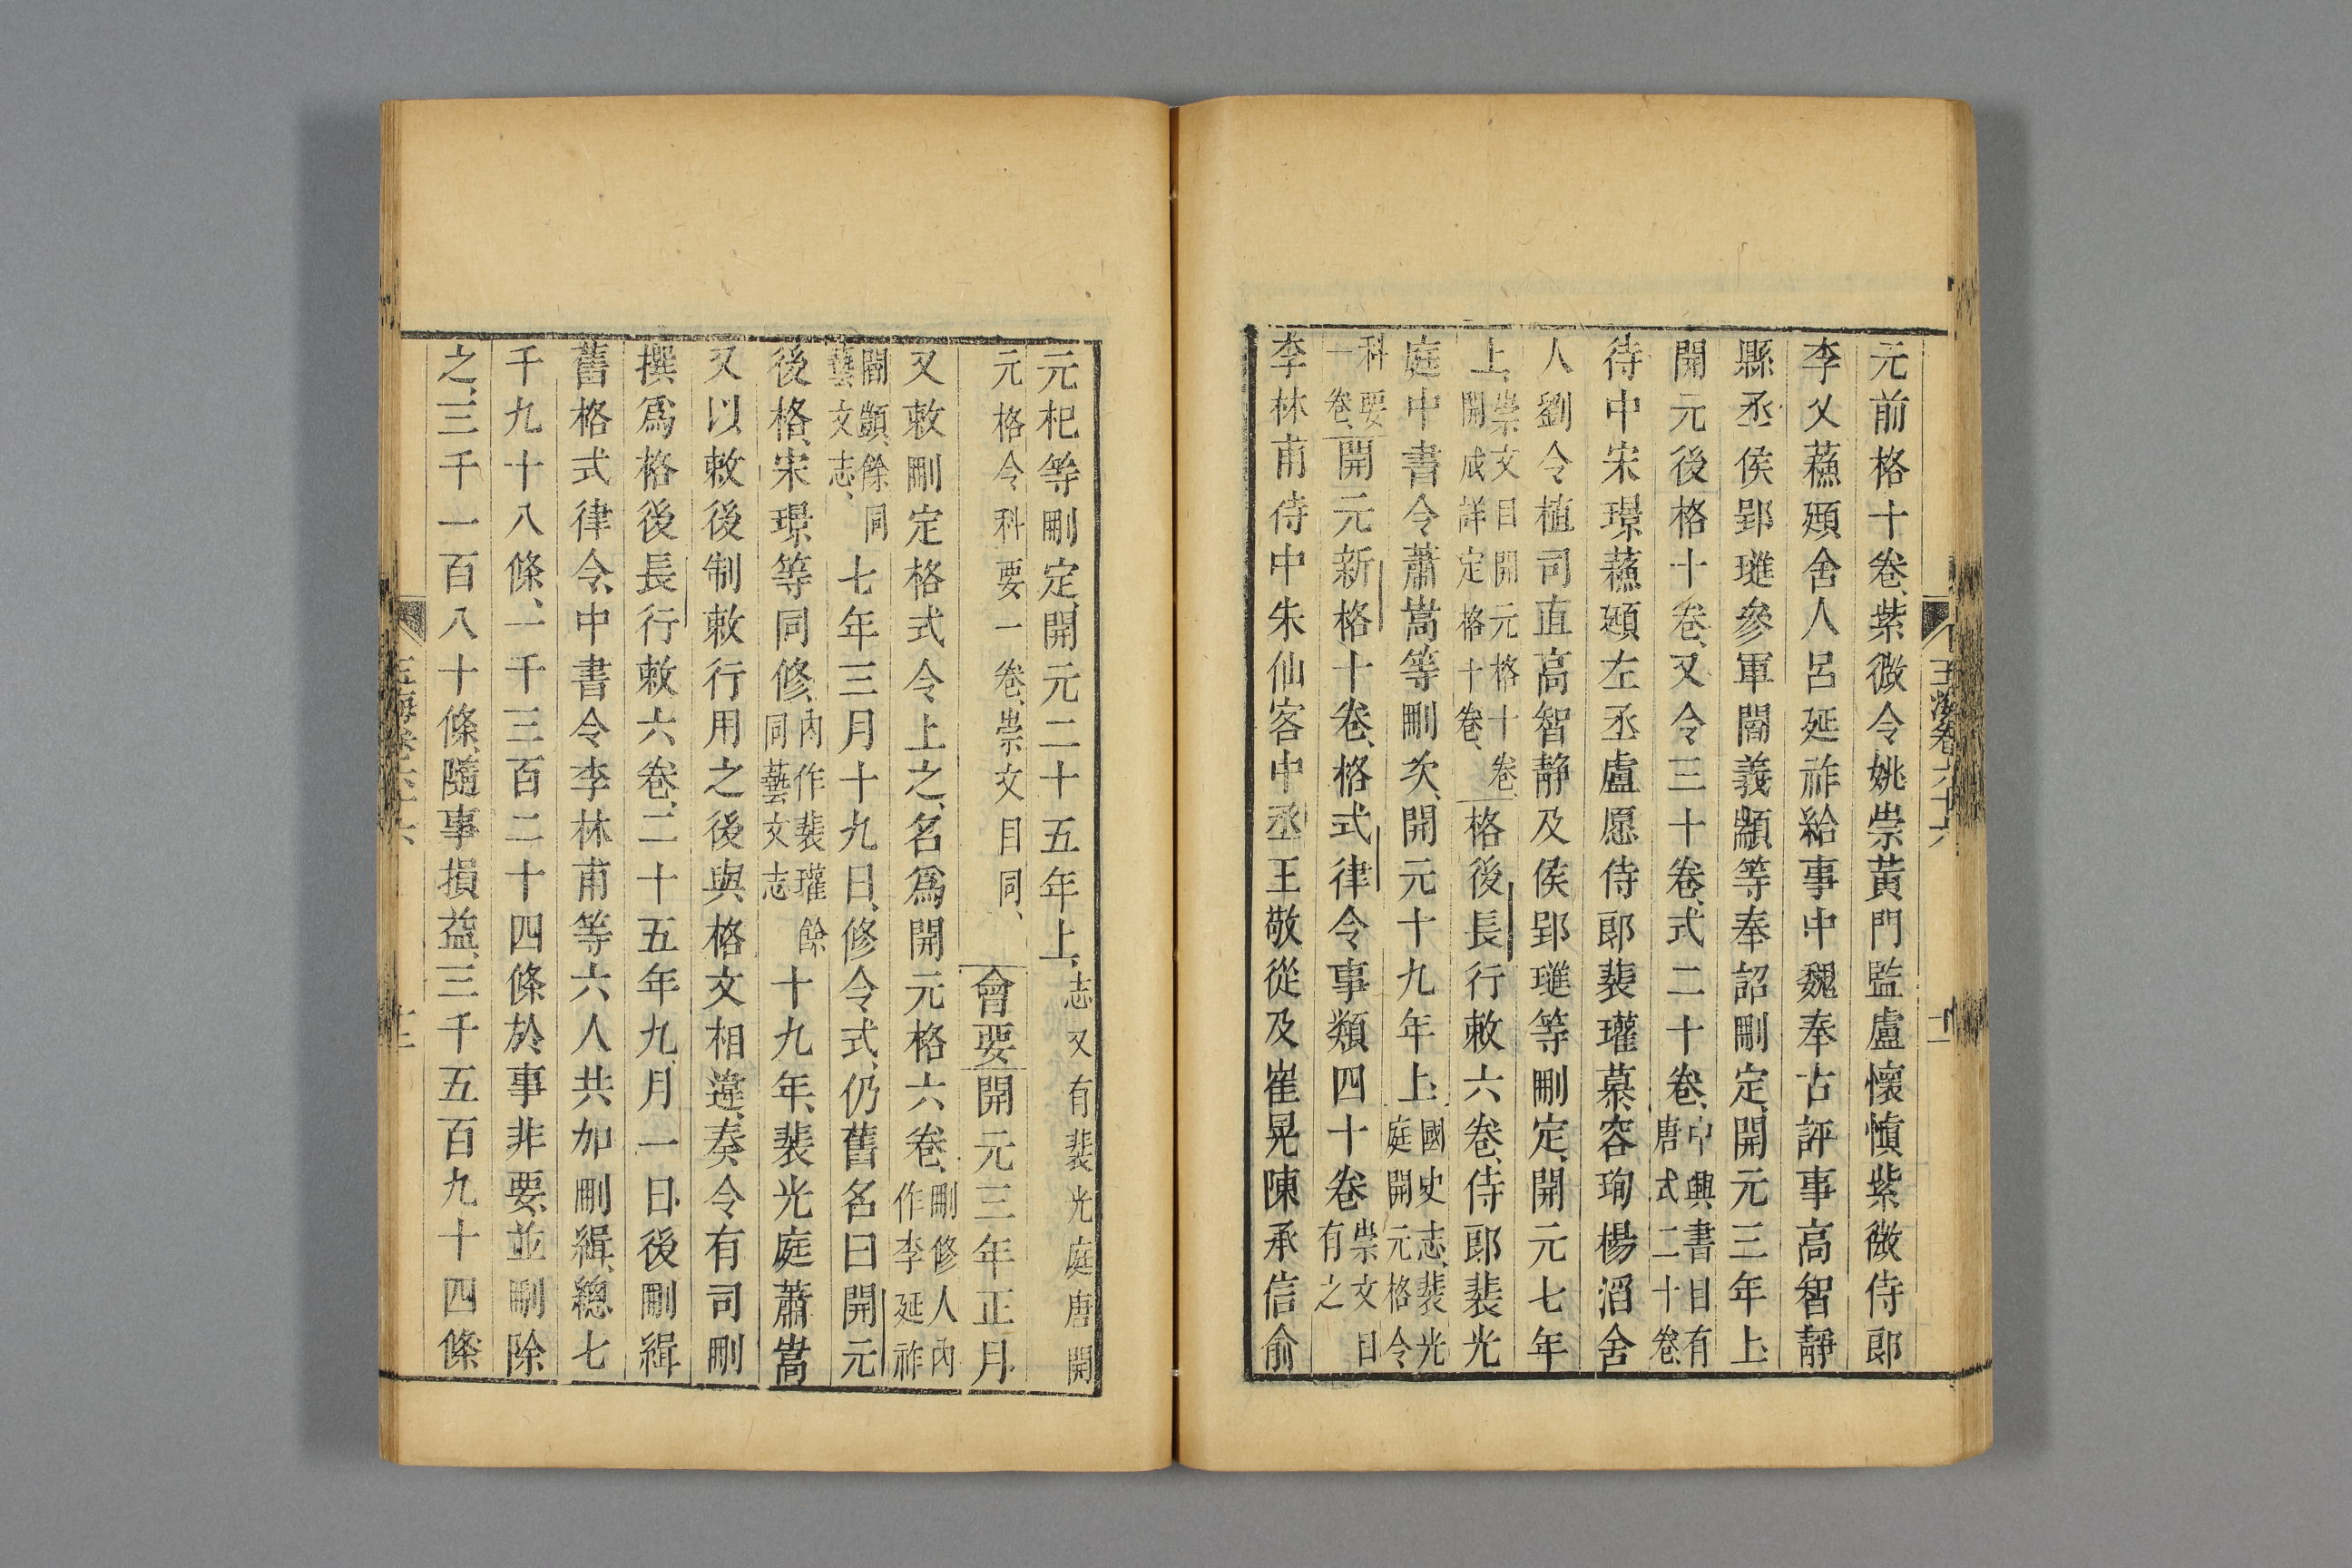 玉海卷六十六
十一
元前格十卷紫微令姚崇黃門監盧懷慎紫微侍郎
李乂蘇頲舍人呂延祚給事中魏奉古評事高智靜
縣丞侯郢璡參軍閻義顓等奉詔刪定開元三年上
開元後格十卷又令三十卷式二十卷中興書目有唐式二十卷
侍中宋璟蘇頲左丞盧愿侍郎裴璀慕容珣楊滔舍
人劉令植司直高智靜及侯郢璡等刪定開元七年
上崇文目開元格十卷開成詳定格十卷格後長行敕六卷侍郎裴光
庭中書令蕭嵩等刪次開元十九年上國史志裴光庭開元格令
科要一卷開元新格十卷格式律令事類四十卷崇文目有之
李林甫侍中朱仙客中丞王敬從及崔晃陳承信俞
元杞等刪定開元二十五年上志又有裴光庭唐開
元格令科要一卷崇文目同會要開元三年正月
又敕刪定格式令上之名爲開元格六卷刪修人內作李延祚
閻顗餘同藝文志七年三月十九日修令式仍舊名曰開元
後格宋璟等同修內作裴璀餘同藝文志十九年裴光庭蕭嵩
又以敕後制敕行用之後與格文相違奏令有司刪
撰爲格後長行敕六卷二十五年九月一日後刪緝
舊格式律令中書令李林甫等六人共加刪緝總七
千九十八條一千三百二十四條於事非要並刪除
之三千一百八十條隨事損益三千五百九十四條
玉海卷六十六